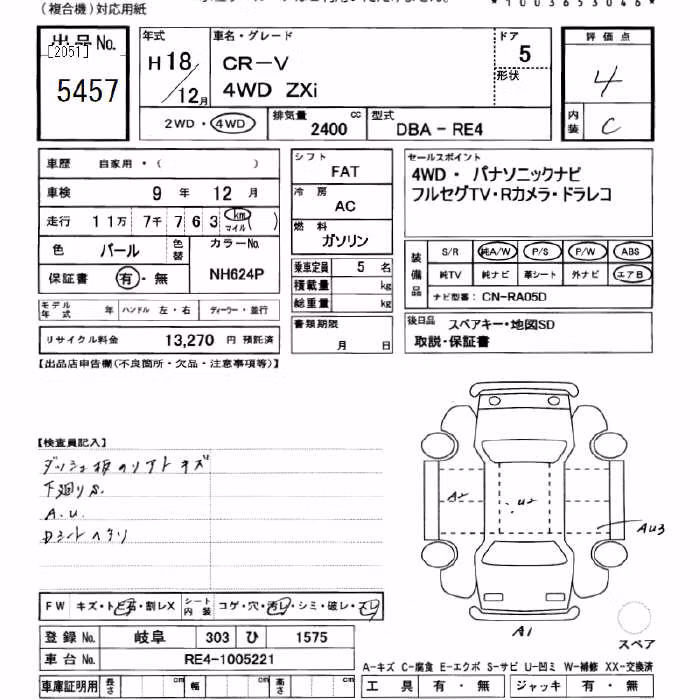 (複合機)対応用紙
*1003653046*
出品No.
[2051]
5457
年式
H18/12月
車名・グレード
CR-V
4WD ZXi
ドア
5
形状
2WD・4WD
排気量 2400 cc
型式 DBA-RE4
評価点
4
内装
C
車歴 自家用・( )
車検 9年 12月
走行 11万 7千 763 km マイル ( )
色 パール 色替
カラーNo. NH624P
保証書 有・無
モデル年式 年 ハンドル 左・右 ディーラー・並行
リサイクル料金 13,270円 預託済
シフト
FAT
冷房
AC
燃料
ガソリン
乗車定員 5 名
積載量 kg
総重量 kg
書類期限
月 日
セールスポイント
4WD・ パナソニックナビ
フルセグTV・Rカメラ・ドラレコ
装備品
S/R 純A/W P/S P/W ABS
純TV 純ナビ 革シート 外ナビ エアB
ナビ型番: CN-RA05D
後日品 スペアキー・地図SD
取説・保証書
【出品店申告欄(不良箇所・欠品・注意事項等)】
【検査員記入】
キズ
下廻りS.
A.U.
A2
U2
AU3
A1
スペア
FW キズ・トビ石・割レX シート内装 コゲ・穴・汚レ・シミ・破レ・スレ
登録No. 岐阜 303 ひ 1575
車台No. RE4-1005221
車庫証明用 長さ cm 幅 cm 高さ cm
A-キズ C-腐食 E-エクボ S-サビ U-凹ミ W-補修 XX-交換済
工具 有・無 ジャッキ 有・無